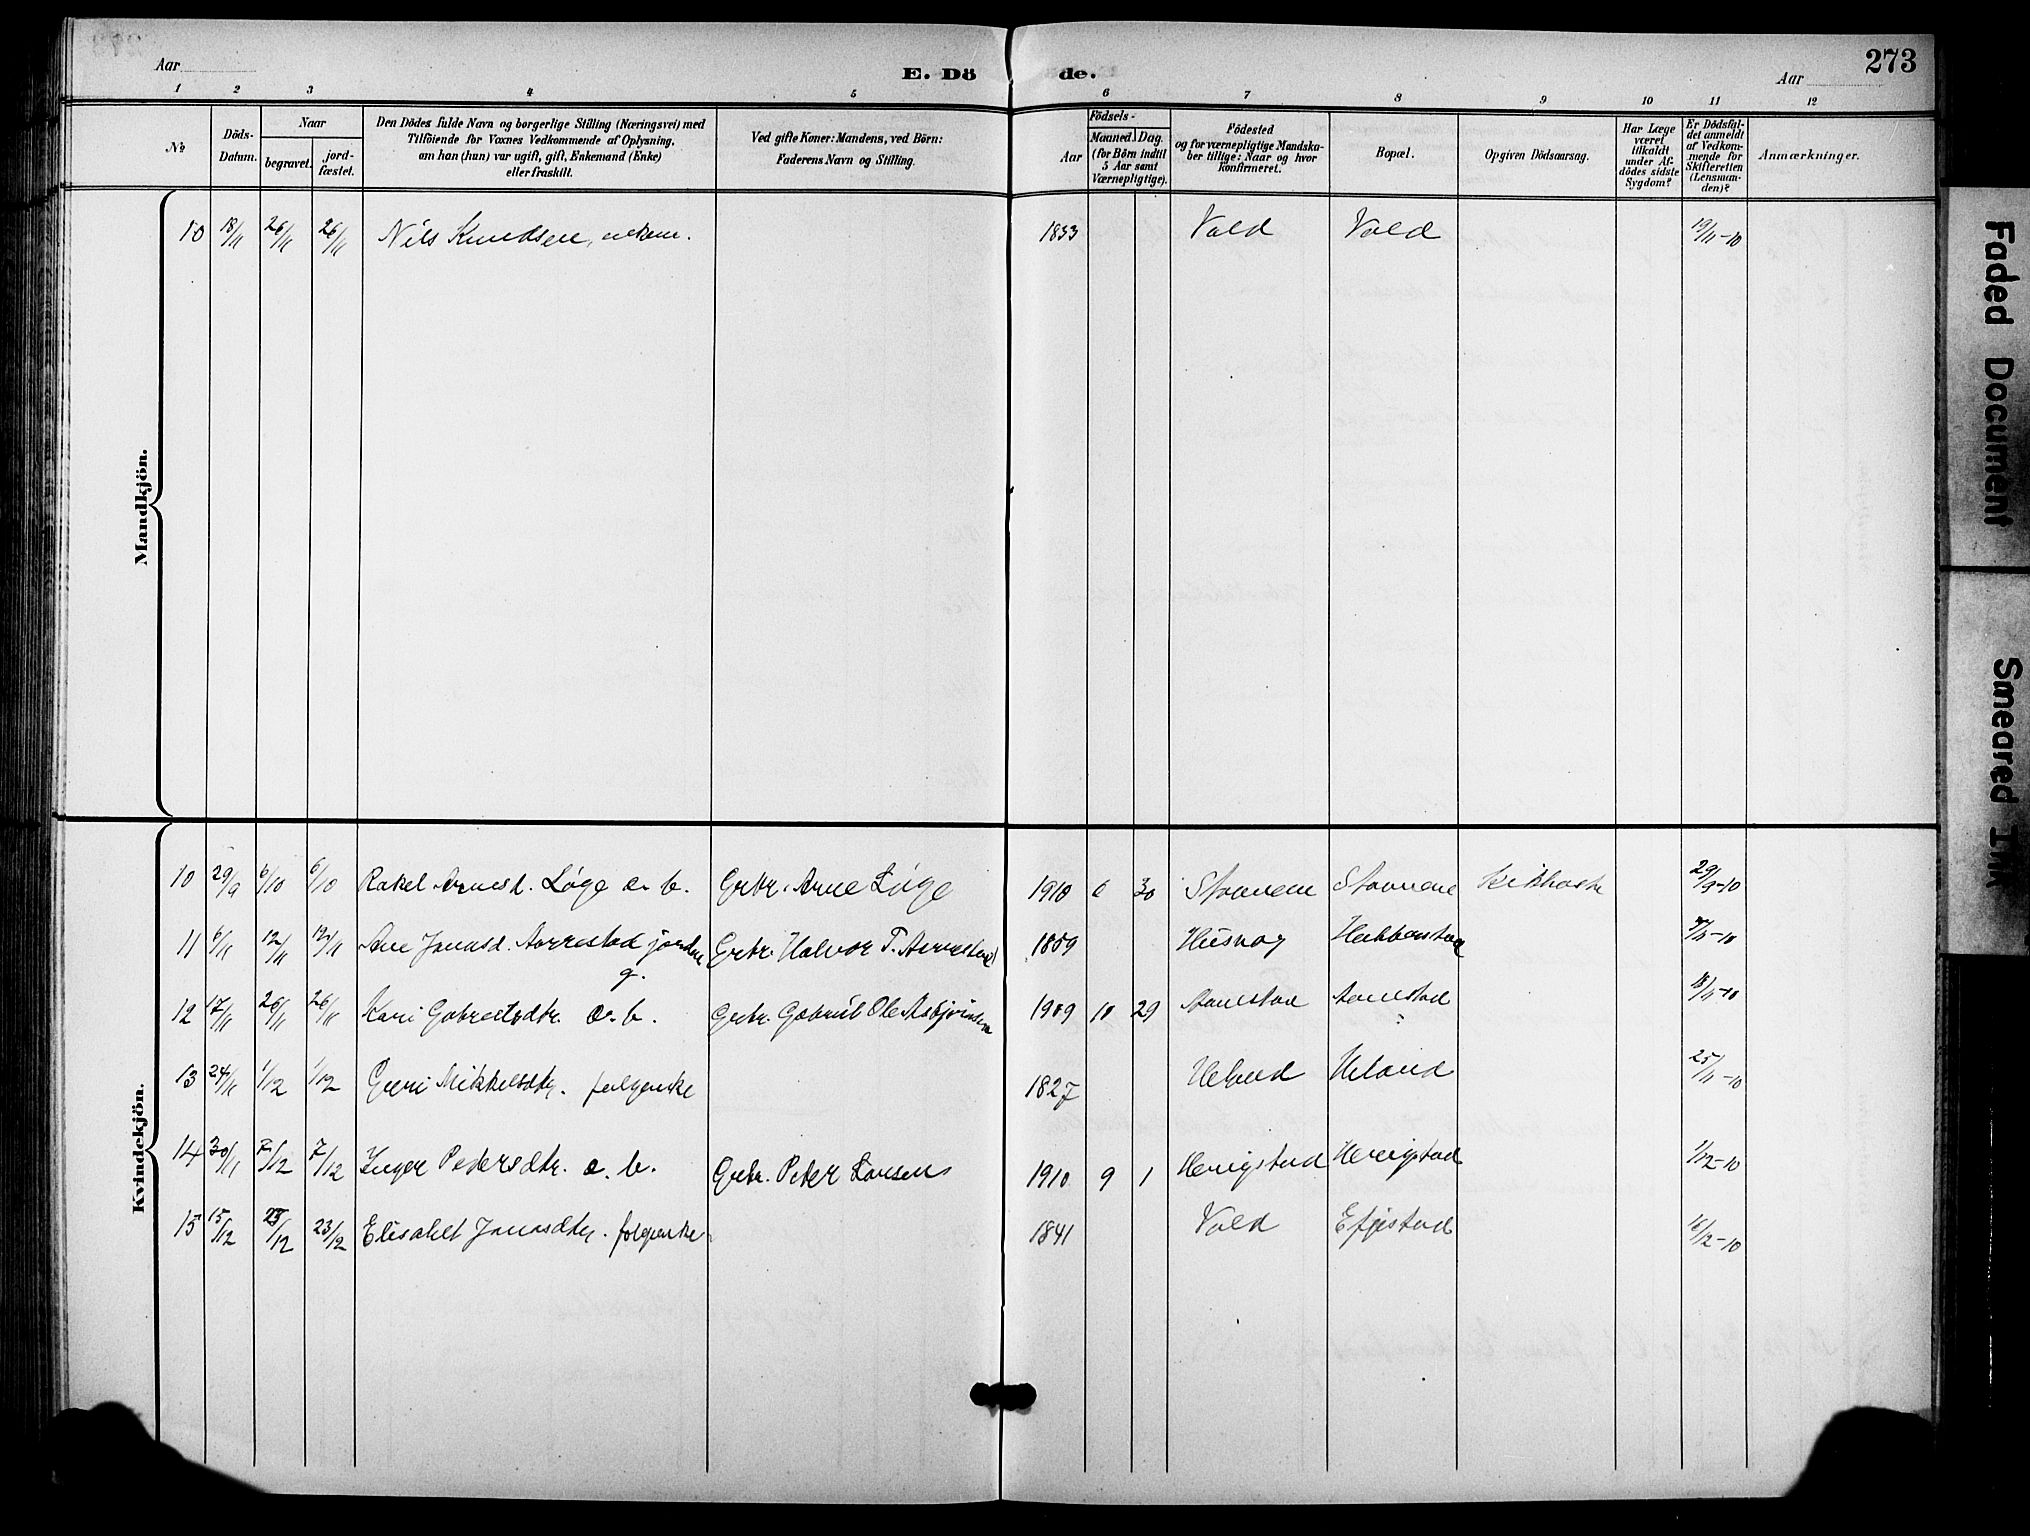 Aar
E. Dö
de.
Aar
273
1 2 3 4 5 6 7 8 9 10 11 12
No
Döds-
Datum.
Naar
begravet.
jord-
fæstet.
Den Dödes fulde Navn og borgerlige Stilling (Næringsvei) med
Tilföiende for Voxnes Vedkommende af Oplysning,
om han (hun) var ugift, gift, Enkemand (Enke)
eller fraskilt.
Ved gifte Koner: Mandens, ved Börn:
Faderens Navn og Stilling.
Födsels-
Aar
Maaned.
Dag.
(for Börn indtil
5 Aar samt
Værnepligtige).
Födested
og for værnepligtige Mandska-
ber tillige: Naar og hvor
konfirmeret.
Bopæl.
Opgiven Dödsaarsag.
Har Læge
været
tilkaldt
under Af-
dödes sidste
Sygdom?
Er Dödsfal-
det anmeldt
af Vedkom-
mende for
Skifteretten
(Lensman-
den)?
Anmærkninger.
Mandkjön.
10 18/11 26/11 26/11 Nils Knudsen, 1853 Vold Vold 19/11-10
Kvindekjön.
10 29/9 6/10 6/10 Rakel Arnesd. Löge e. b. Grbr. Arne Löge 1910 6 30 Stavnem Kikhoste 29/9-10
11 6/11 12/11 12/11 Ane Jonasd. Aarrestad
g.
Grbr. Halvor T. Aarrestad 1859 7/11-10
12 17/11 26/11 26/11 Kari Gabrielsdtr. e. b. Grbr. Gabriel Ole Asbjörnsen 1909 10 29 18/11-10
13 24/11 1/12 1/12 Guri Mikkelsdtr. folgenke 1827 Heland Heland 25/11-10
14 30/11 7/12 7/12 Inger Pedersdtr. e. b. Grbr. Peter Larsen 1910 9 1 Henigstad Henigstad 1/12-10
15 15/12 23/12 23/12 Elisabet Jonasdtr. folgenke 1841 Vold Efjestad 16/12-10
Faded Document
Smeared Ink